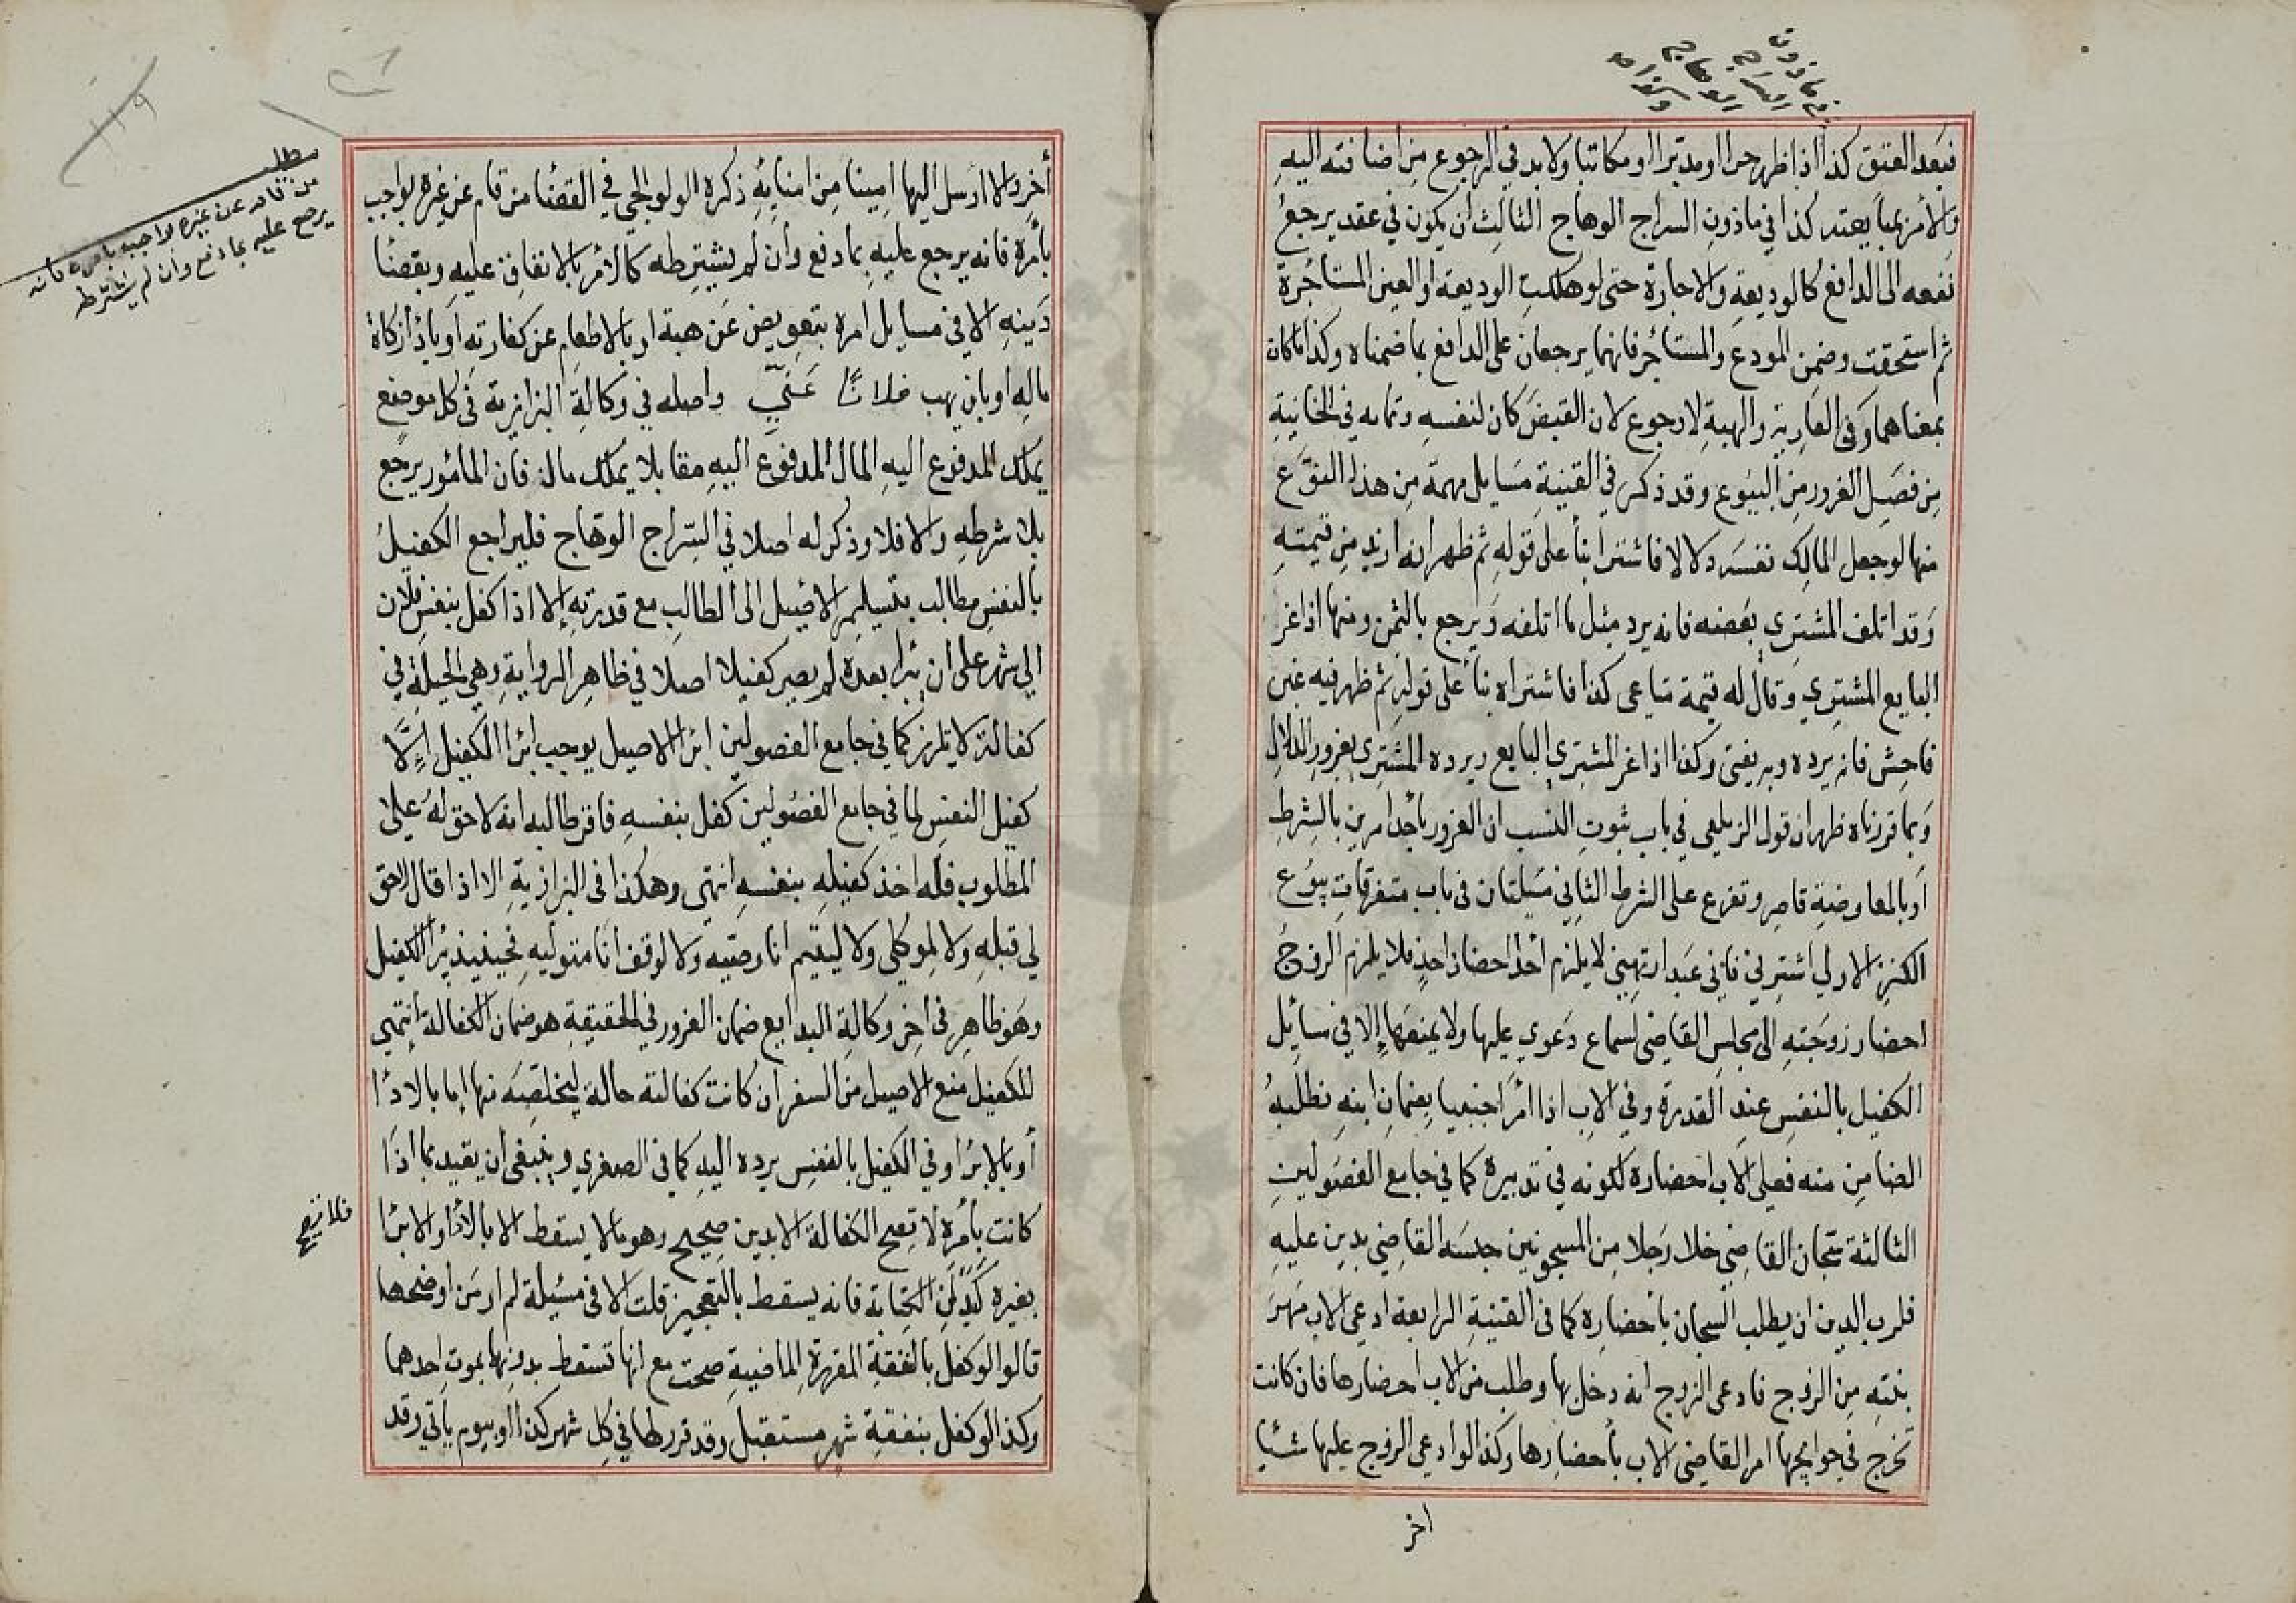 فبعد العتق كذا اذا ظهر حرا او مدبرا او مكاتبا ولا بد في الرجوع من اضافته اليه
والامر بمبايعته كذا في ماذون السراج الوهاج الثالث ان يكون في عقد يرجع
نفعه الى الدافع كالوديعة والاجارة حتى لو هلكت الوديعة او العين المستأجرة
ثم استحقت وضمن المودع والمستأجر فانهما يرجعان على الدافع بما ضمناه وكذا ماكان
بمعناهما وفي العارية والهبة لا رجوع لان القبض كان لنفسه وتمامه في الخانية
من فصل الغرور من البيوع وقد ذكر في القنية مسايل مهمة من هذا النوع
منها لو جعل المالك نفسه دلالا فاشترا بنأ على قوله ثم ظهر انه ازيد من قيمته
وقد اتلف المشتري بعضه فانه يرد مثل ما اتلفه ويرجع بالثمن ومنها اذا غر
البايع المشتري وقال له قيمة متاعي كذا فاشتراه بنأ على قوله ثم ظهر فيه غبن
فاحش فانه يرده وبه يفتى وكذا اذا غر المشتري البايع ويرده المشتري بغرور الدلال
وبما قررناه ظهر ان قول الزيلعي في باب ثبوت النسب ان الغرور باحد امرين بالشرط
او بالمعاوضة قاصر وتفرع على الشرط الثاني مسئلتان في باب متفرقات بيوع
الكنز الاولي اشترني فاني عبد ارتهني لا يلزم احد احضار احد فلا يلزم الزوج
احضار زوجته الى مجلس القاضي لسماع دعوي عليها ولا يمنعها إلا في مسايل
الكفيل بالنفس عند القدرة وفي الاب اذا امر اجنبيا بضمان ابنه فطلبه
الضامن منه فعلى الاب احضاره لكونه في تدبيره كما في جامع الفصولين
الثالثة سجان القاضي خلا رجلا من المسجونين حبسه القاضي بدين عليه
فلرب الدين ان يطلب السجان باحضاره كما في القنية الرابعة ادعى الاب مهر
بنته من الزوج فادعى الزوج انه دخل بها وطلب من الاب احضارها فان كانت
تخرج في حوايجها امر القاضي الاب بأحضارها وكذا لو ادعى الزوج عليها شئيا
اخر
أخر والا ارسل اليها امينا من امنايه ذكره الولوالجي في القضئا من قام عن غيره بواجب
بأمره فانه يرجع عليه بما دفع وان لم يشترطه كالامر بالانفاق عليه وبقضئا
دينه الا في مسايل امره بتعويض عن هبة او بالاطعام عن كفارته او بأدأ زكاة
ماله او بان يهب فلانا عني واصله في وكالة البزازية في كل موضع
يملك المدفوع اليه المال المدفوع اليه مقابلا يملك مال فان المأمور يرجع
بلا شرطه والا فلا وذكر له اصلا في السراج الوهاج فليراجع الكفيل
بالنفس مطالب بتسليم الاصيل الى الطالب مع قدرته إلا اذا كفل بنفس فلان
الي شهر على ان يبرا بعده لم يصر كفيلا اصلا في ظاهر الرواية وهي الحيلة في
كفالة لا تلزم كما في جامع الفصولين ابرا الاصيل يوجب ابرا الكفيل إلا
كفيل النفس لما في جامع الفصولين كفل بنفسه فاقر طالبه انه لا حق له على
المطلوب فله اخذ كفيله بنفسه انتهى وهكذا في البزازية الا اذا قال لاحق
لي قبله ولا لموكلي ولا ليتيم انا وصيه ولا لوقف انا متوليه فحينيذ يبرا الكفيل
وهو ظاهر في اخر وكالة البدايع ضمان الغرور في الحقيقة هو ضمان الكفالة انتهى
للكفيل منع الاصيل من السفر ان كانت كفالته حالة ليخلصه منها إما بالادأ
أو بالابرا وفي الكفيل بالنفس يرده اليه كما في الصغري وينبغي ان يقيد بما اذا
كانت بأمره لا تصح الكفالة الا بدين صحيح وهو مالا يسقط الا بالأدأ او الابرا
فلا تصح
بغيره كبدل الكتابة فانه يسقط بالتعجيز قلت الا في مسئلة لم ار من اوضحها
قالوا لو كفل بالنفقة المقررة الماضية صحت مع انها تسقط بدونهما بموت احدهما
وكذا لو كفل بنفقة شهر مستقبل وقد قرر لها في كل شهر كذا او بيوم ياتي وقد
مطلب
من قام عن غيره بواجبه بامره فانه
يرجع عليه بما دفع وان لم يشترط
١١٩